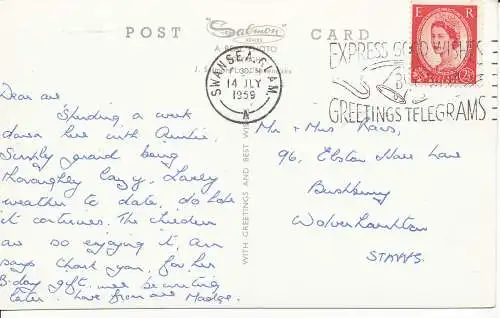 POST CARD
"Salmon"
SERIES
A REAL PHOTO
J. Salmon Ltd., Sevenoaks
SWANSEA, GLAM.
14 JLY
1959
A
EXPRESS GOOD WISHES
BY
GREETINGS TELEGRAMS
E R
2½
WITH GREETINGS AND BEST WISHES
Dear all
Spending a week
down here with Auntie,
Simply grand being
thoroughly lazy, Lovely
weather to date, do hope
it continues. The children
are so enjoying it, Ann
says thank you, for her
B-day gift will be writing
later. Love from all Madge.
Mr & Mrs
96, Elston Hall Lane
Bushbury
Wolverhampton
STAFFS.